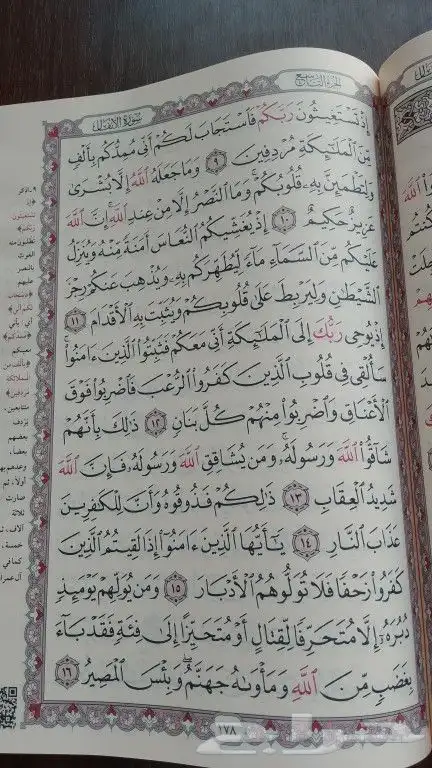 الجزء التاسع
سورة الأنفال
إِذْ تَسْتَغِيثُونَ رَبَّكُمْ فَٱسْتَجَابَ لَكُمْ أَنِّي مُمِدُّكُم بِأَلْفٍ
مِّنَ ٱلْمَلَٰٓئِكَةِ مُرْدِفِينَ ٩ وَمَا جَعَلَهُ ٱللَّهُ إِلَّا بُشْرَىٰ
وَلِتَطْمَئِنَّ بِهِۦ قُلُوبُكُمْ ۚ وَمَا ٱلنَّصْرُ إِلَّا مِنْ عِندِ ٱللَّهِ ۚ إِنَّ ٱللَّهَ
عَزِيزٌ حَكِيمٌ ١٠ إِذْ يُغَشِّيكُمُ ٱلنُّعَاسَ أَمَنَةً مِّنْهُ وَيُنَزِّلُ
عَلَيْكُم مِّنَ ٱلسَّمَآءِ مَآءً لِّيُطَهِّرَكُم بِهِۦ وَيُذْهِبَ عَنكُمْ رِجْزَ
ٱلشَّيْطَٰنِ وَلِيَرْبِطَ عَلَىٰ قُلُوبِكُمْ وَيُثَبِّتَ بِهِ ٱلْأَقْدَامَ ١١
إِذْ يُوحِي رَبُّكَ إِلَى ٱلْمَلَٰٓئِكَةِ أَنِّي مَعَكُمْ فَثَبِّتُوا۟ ٱلَّذِينَ ءَامَنُوا۟ ۚ
سَأُلْقِي فِي قُلُوبِ ٱلَّذِينَ كَفَرُوا۟ ٱلرُّعْبَ فَٱضْرِبُوا۟ فَوْقَ
ٱلْأَعْنَاقِ وَٱضْرِبُوا۟ مِنْهُمْ كُلَّ بَنَانٍ ١٢ ذَٰلِكَ بِأَنَّهُمْ
شَآقُّوا۟ ٱللَّهَ وَرَسُولَهُۥ ۚ وَمَن يُشَاقِقِ ٱللَّهَ وَرَسُولَهُۥ فَإِنَّ ٱللَّهَ
شَدِيدُ ٱلْعِقَابِ ١٣ ذَٰلِكُمْ فَذُوقُوهُ وَأَنَّ لِلْكَٰفِرِينَ
عَذَابَ ٱلنَّارِ ١٤ يَٰٓأَيُّهَا ٱلَّذِينَ ءَامَنُوٓا۟ إِذَا لَقِيتُمُ ٱلَّذِينَ
كَفَرُوا۟ زَحْفًا فَلَا تُوَلُّوهُمُ ٱلْأَدْبَارَ ١٥ وَمَن يُوَلِّهِمْ يَوْمَئِذٍ
دُبُرَهُۥٓ إِلَّا مُتَحَرِّفًا لِّقِتَالٍ أَوْ مُتَحَيِّزًا إِلَىٰ فِئَةٍ فَقَدْ بَآءَ
بِغَضَبٍ مِّنَ ٱللَّهِ وَمَأْوَىٰهُ جَهَنَّمُ ۖ وَبِئْسَ ٱلْمَصِيرُ ١٦
١٧٨
تستغيثون
ربكم
تطلبون منه
الغوث
بالنصر
عليهم
فاستجاب
لكم أني
أي: بأني
ممدكم
معينكم
بألف من
الملائكة
مردفين
متتابعين،
يردف
بعضهم
بعضا،
وعدهم بها
أولا، ثم
صارت
ثلاثة
آلاف، ثم
خمسة،
كما في
آل عمران